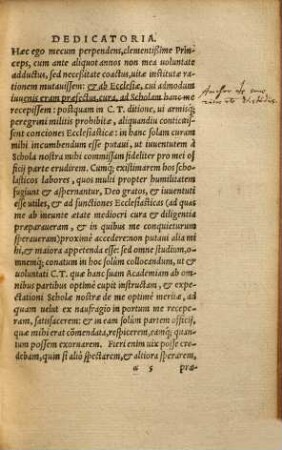 DEDICATORIA.
Hæc ego mecum perpendens, clementißime Prin-
ceps, cum ante aliquot annos non mea uoluntate
adductus, sed necessitate coactus, uitæ institutæ ra-
tionem mutauissem: & ab Ecclesiæ, cui admodum
iuuenis eram præfectus, cura, ad Scholam hanc me
recepissem: postquam in C.T. ditione, ui armisq;
peregrini militis prohibitæ, aliquandiu conticuis-
sent conciones Ecclesiasticæ: in hanc solam curam
mihi incumbendum esse putaui, ut iuuentuti à
Schola nostra mihi commissam fideliter pro mei of-
ficij parte erudirem. Cumq; existimarem hos scho-
lasticos labores, quos multi propter humilitatem
fugiunt & aspernantur, Deo gratos, & iuuentuti
esse utiles, & ad functiones Ecclesiasticas (ad quas
me ab ineunte ætate mediocri cura & diligentia
præparaueram, & in quibus me conquieturum
speraueram) proximè accedere: non putaui alia mi-
hi, & maiora appetenda esse: sed omne studium, o-
mnemq; conatum in hoc solùm collocandum, ut &
uoluntati C.T. quæ hanc suam Academiam ab o-
mnibus partibus optimè cupit instructam, & ex-
pectationi Scholæ nostræ de me optimè meritæ, ad
quam uelut ex naufragio in portum me recepe-
ram, satisfacerem: & in eam solùm partem officij,
quæ mihi erat cõmendata, respicerem, eamq; quan-
tum possem exornarem. Fieri enim uix posse cre-
debam, quin si aliò spectarem, & altiora sperarem,
a 5 præ-